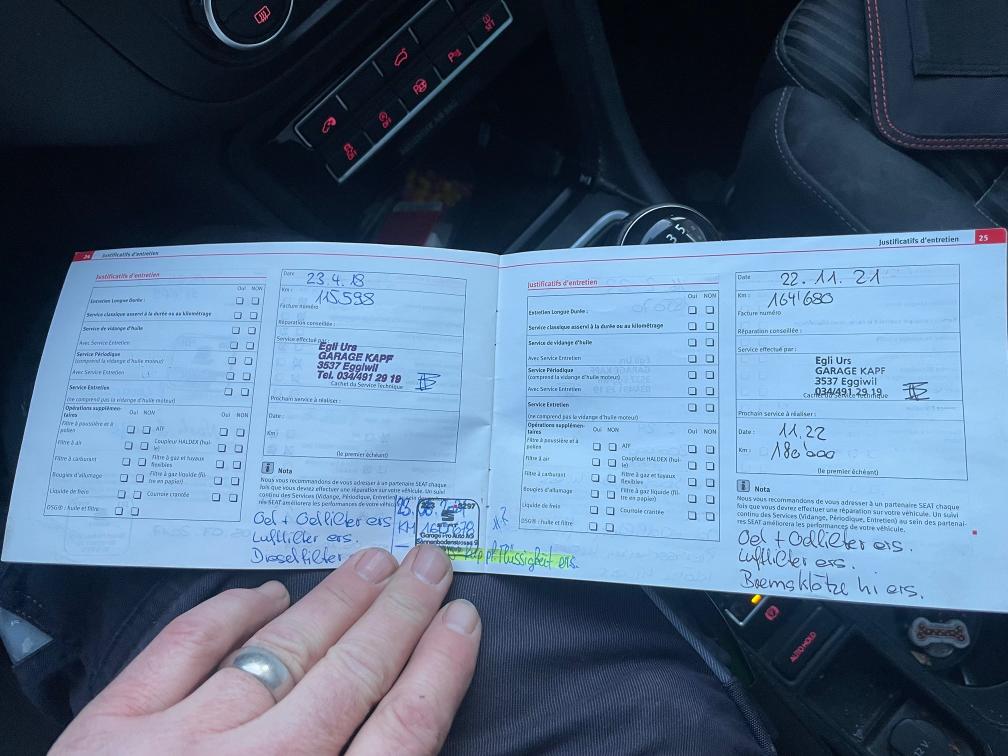 OFF
OFF
SET
PASSENGER AIR BAG
5
24
Justificatifs d'entretien
Justificatifs d'entretien
Oui NON
Entretien Longue Durée :
Service classique asservi à la durée ou au kilométrage
Service de vidange d'huile
Avec Service Entretien
Service Périodique
(comprend la vidange d'huile moteur)
Avec Service Entretien
Service Entretien
(ne comprend pas la vidange d'huile moteur)
Opérations supplémen-
taires
Oui NON
Oui NON
Filtre à poussière et à
pollen
ATF
Filtre à air
Coupleur HALDEX (hui-
le)
Filtre à carburant
Filtre à gaz et tuyaux
flexibles
Bougies d'allumage
Filtre à gaz liquide (fil-
tre en papier)
Liquide de frein
Courroie crantée
DSG® : huile et filtre
Date
23.4.18
Km :
115598
Facture numéro
Réparation conseillée :
Service effectué par :
Egli Urs
GARAGE KAPF
3537 Eggiwil
Tel. 034/491 29 19
Cachet du Service Technique
Prochain service à réaliser :
Date :
Km :
(le premier échéant)
Nota
Nous vous recommandons de vous adresser à un partenaire SEAT chaque
fois que vous devrez effectuer une réparation sur votre véhicule. Un suivi
continu des Services (Vidange, Périodique, Entretien) au sein des partenai-
res SEAT améliorera les performances du véhicule.
Oel + Oelfilter ers
Luftfilter ers.
Dieselfilter
KM
Garage Pro Auto AG
flüssigkeit ers.
Justificatifs d'entretien
25
Justificatifs d'entretien
Oui NON
Entretien Longue Durée :
Service classique asservi à la durée ou au kilométrage
Service de vidange d'huile
Avec Service Entretien
Service Périodique
(comprend la vidange d'huile moteur)
Avec Service Entretien
Service Entretien
(ne comprend pas la vidange d'huile moteur)
Opérations supplémen-
taires
Oui NON
Oui NON
Filtre à poussière et à
pollen
ATF
Filtre à air
Coupleur HALDEX (hui-
le)
Filtre à carburant
Filtre à gaz et tuyaux
flexibles
Bougies d'allumage
Filtre à gaz liquide (fil-
tre en papier)
Liquide de frein
Courroie crantée
DSG® : huile et filtre
Date
22.11.21
Km :
164'680
Facture numéro
Réparation conseillée :
Service effectué par :
Egli Urs
GARAGE KAPF
3537 Eggiwil
034/491 29 19
Cachet du Service Technique
Prochain service à réaliser :
Date :
11.22
Km :
180'000
(le premier échéant)
Nota
Nous vous recommandons de vous adresser à un partenaire SEAT chaque
fois que vous devrez effectuer une réparation sur votre véhicule. Un suivi
continu des Services (Vidange, Périodique, Entretien) au sein des partenai-
res SEAT améliorera les performances du véhicule.
Oel + Oelfilter ers.
Luftfilter ers.
Bremsklötze hi ers.
AUTO HOLD
12V